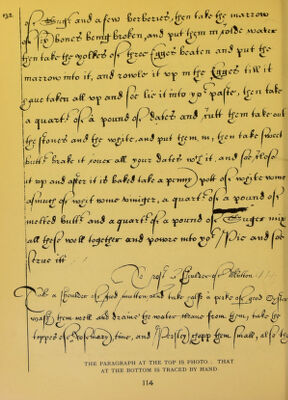 132
of Suger and a few berberies, then take the marrow
of six bones being broken, and put them in colde water
then take the yolkes of three Egges beaten and put the
marrow into it, and rowle it up in the Egges till it
have taken all up and soe lie it into yor paste, then take
a quartr of a pound of dates and cutt them take out
the stones and the white, and put them in, then take sweet
buttr brake it over all your dates wth it, and soe close
it up and after it is baked take a penny pott of white wine
asmuch of whit wine viniger, a quartr of a pound of
melted buttr and a quartr of a pound of Suger mix
all these well together and powre into yor Pie and soe
serve itt
To rost a shoulder of Mutton
Take a shoulder of good mutton and take halfe a pecke of good Oysters
wash them well and draine the water cleane from them, take the
toppes of Rosemary, time, and Persley chopp them small, also the
THE PARAGRAPH AT THE TOP IS PHOTO ; THAT
AT THE BOTTOM IS TRACED BY HAND
114